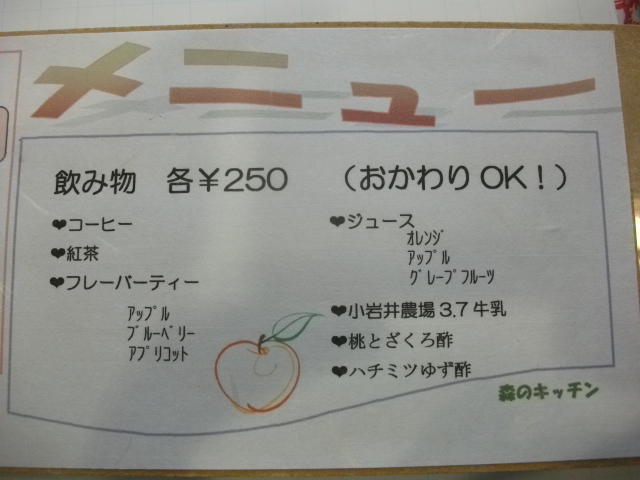 メニュー
飲み物　各￥250　（おかわりOK！）
❤コーヒー
❤紅茶
❤フレーバーティー
ｱｯﾌﾟﾙ
ﾌﾞﾙｰﾍﾞﾘｰ
ｱﾌﾟﾘｺｯﾄ
❤ジュース
ｵﾚﾝｼﾞ
ｱｯﾌﾟﾙ
ｸﾞﾚｰﾌﾟﾌﾙｰﾂ
❤小岩井農場3.7牛乳
❤桃とざくろ酢
❤ハチミツゆず酢
森のキッチン